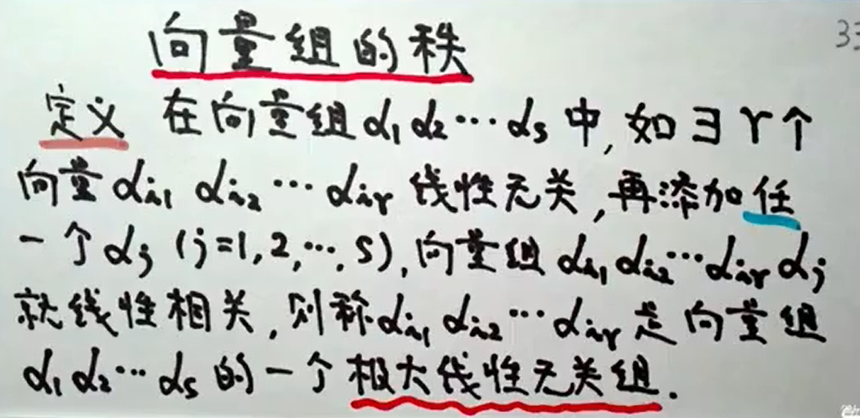 向量组的秩
33
定义 在向量组α₁α₂⋯αₛ中,如∃r个
向量αᵢ₁ αᵢ₂ ⋯ αᵢᵣ 线性无关,再添加任
一个αⱼ (j=1,2,⋯,s),向量组αᵢ₁αᵢ₂⋯αᵢᵣαⱼ
就线性相关,则称αᵢ₁αᵢ₂⋯αᵢᵣ是向量组
α₁α₂⋯αₛ的一个极大线性无关组.